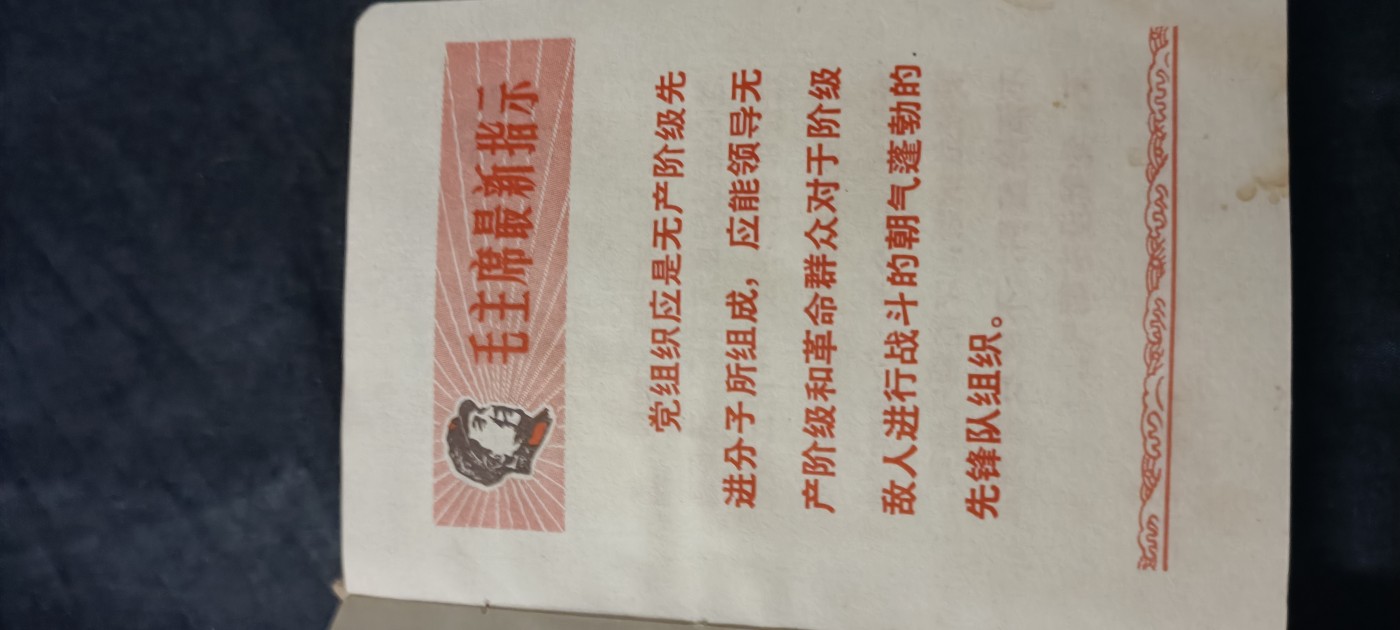 毛主席最新指示
党组织应是无产阶级先
进分子所组成，应能领导无
产阶级和革命群众对于阶级
敌人进行战斗的朝气蓬勃的
先锋队组织。